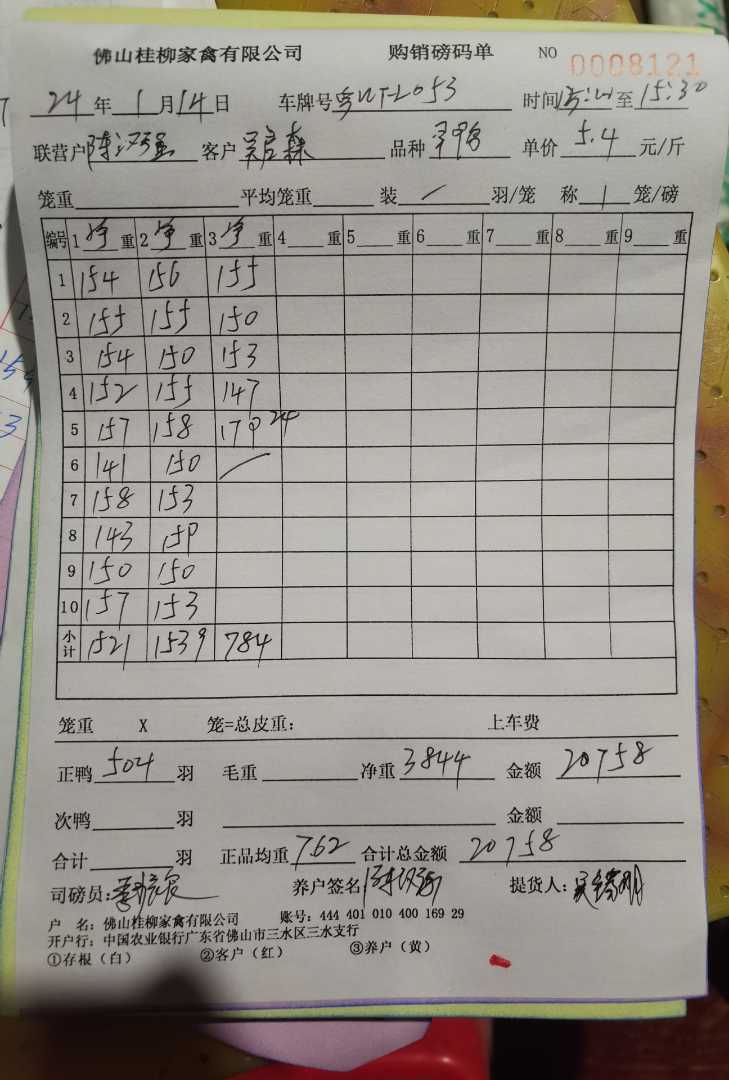 佛山桂柳家禽有限公司 购销磅码单 NO 0008121
24年1月14日 车牌号 时间 至15:30
联营户陈汉强 客户吴启森 品种 单价5.4元/斤
笼重 平均笼重 装/羽/笼 称1笼/磅
编号 1净重 2净重 3净重 4重 5重 6重 7重 8重 9重
1 154 156 155
2 155 155 150
3 154 150 153
4 152 155 147
5 157 158 179 24
6 141 150 /
7 158 153
8 143 159
9 150 150
10 157 153
小计 1521 1539 784
笼重 X 笼=总皮重: 上车费
正鸭504羽 毛重 净重3844 金额20758
次鸭 羽 金额
合计 羽 正品均重7.62 合计总金额20758
司磅员: 养户签名 提货人:
户 名: 佛山桂柳家禽有限公司 账号: 444 401 010 400 169 29
开户行: 中国农业银行广东省佛山市三水区三水支行
①存根（白） ②客户（红） ③养户（黄）